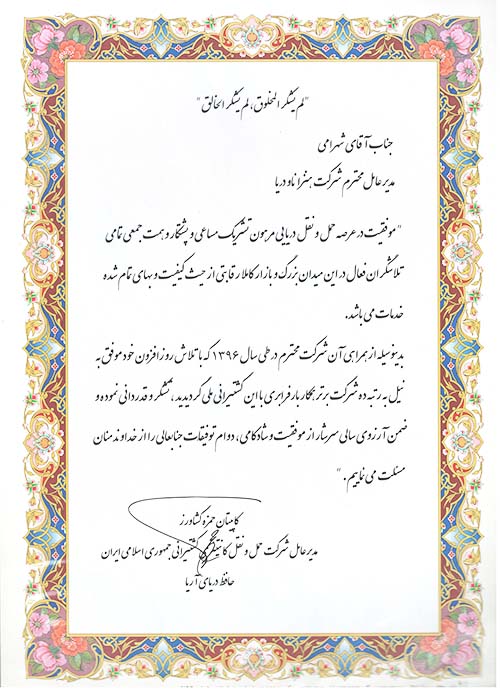 "لم یشکر المخلوق، لم یشکر الخالق"
جناب آقای شهرامی
مدیرعامل محترم شرکت هنزا ناو دریا
"موفقیت در عرصه حمل و نقل دریایی مرهون تشریک مساعی و پشتکار و همت جمعی تمامی
تلاشگران فعال در این میدان بزرگ و بازار کاملا رقابتی از حیث کیفیت و بهای تمام شده
خدمات می باشد.
بدینوسیله از همراهی آن شرکت محترم در طی سال ۱۳۹۶ که با تلاش روز افزون خود موفق به
نیل به رتبه ده شرکت برتر همکار بارفرابری با این کشتیرانی ملی گردیدید، تشکر و قدردانی نموده و
ضمن آرزوی سالی سرشار از موفقیت و شادکامی، دوام توفیقات جنابعالی را از خداوند منان
مسئلت می نماییم."
کاپیتان حمزه کشاورز
مدیرعامل شرکت حمل و نقل کانتینری کشتیرانی جمهوری اسلامی ایران
حافظ دریای آریا